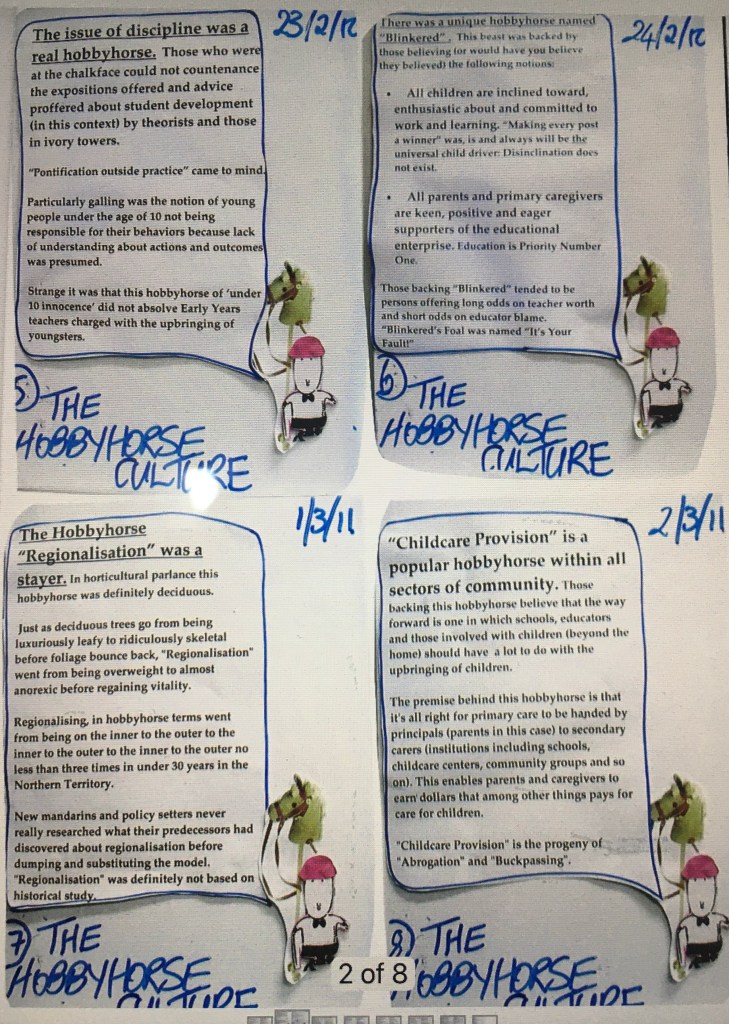 The issue of discipline was a
real hobbyhorse. Those who were
at the chalkface could not countenance
the expositions offered and advice
proffered about student development
(in this context) by theorists and those
in ivory towers.
"Pontification outside practice" came to mind.
Particularly galling was the notion of young
people under the age of 10 not being
responsible for their behaviors because lack
of understanding about actions and outcomes
was presumed.
Strange it was that this hobbyhorse of 'under
10 innocence' did not absolve Early Years
teachers charged with the upbringing of
youngsters.
23/2/12
5) THE
HOBBYHORSE
CULTURE
There was a unique hobbyhorse named
"Blinkered". This beast was backed by
those believing (or would have you believe
they believed) the following notions:
• All children are inclined toward,
enthusiastic about and committed to
work and learning. "Making every post
a winner" was, is and always will be the
universal child driver: Disinclination does
not exist.
• All parents and primary caregivers
are keen, positive and eager
supporters of the educational
enterprise. Education is Priority Number
One.
Those backing "Blinkered" tended to be
persons offering long odds on teacher worth
and short odds on educator blame.
"Blinkered's Foal was named "It's Your
Fault!"
24/2/12
6) THE
HOBBYHORSE
CULTURE
The Hobbyhorse
"Regionalisation" was a
stayer. In horticultural parlance this
hobbyhorse was definitely deciduous.
Just as deciduous trees go from being
luxuriously leafy to ridiculously skeletal
before foliage bounce back, "Regionalisation"
went from being overweight to almost
anorexic before regaining vitality.
Regionalising, in hobbyhorse terms went
from being on the inner to the outer to the
inner to the outer to the inner to the outer no
less than three times in under 30 years in the
Northern Territory.
New mandarins and policy setters never
really researched what their predecessors had
discovered about regionalisation before
dumping and substituting the model.
"Regionalisation" was definitely not based on
historical study.
1/3/11
7) THE
HOBBYHORSE
CULTURE
"Childcare Provision" is a
popular hobbyhorse within all
sectors of community. Those
backing this hobbyhorse believe that the way
forward is one in which schools, educators
and those involved with children (beyond the
home) should have a lot to do with the
upbringing of children.
The premise behind this hobbyhorse is that
it's all right for primary care to be handed by
principals (parents in this case) to secondary
carers (institutions including schools,
childcare centers, community groups and so
on). This enables parents and caregivers to
earn dollars that among other things pays for
care for children.
"Childcare Provision" is the progeny of
"Abrogation" and "Buckpassing".
2/3/11
8) THE
HOBBYHORSE
CULTURE
2 of 8